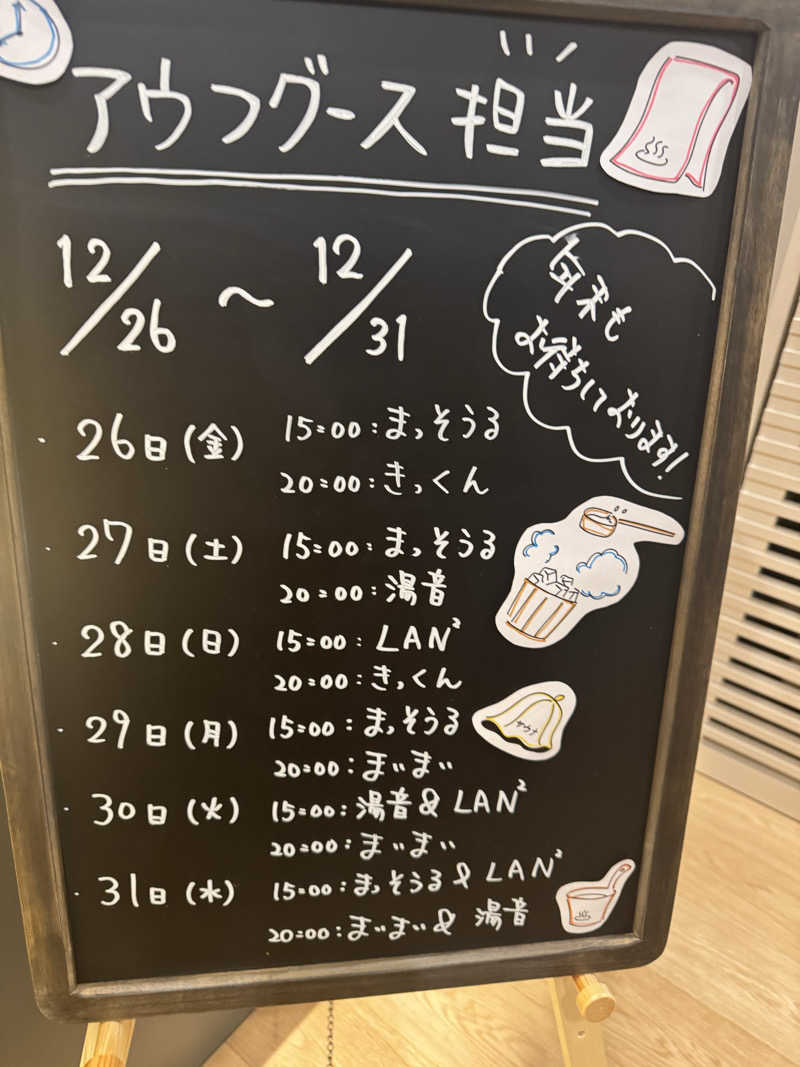 アウフグース担当
12/26 ~ 12/31
年末も
お待ちしております!
・26日(金) 15:00:まっそうる
20:00:きっくん
・27日(土) 15:00:まっそうる
20:00:湯音
・28日(日) 15:00:LAN²
20:00:きっくん
・29日(月) 15:00:まっそうる
20:00:まいまい
サウナ
・30日(火) 15:00:湯音&LAN²
20:00:まいまい
・31日(水) 15:00:まっそうる&LAN²
20:00:まいまい& 湯音